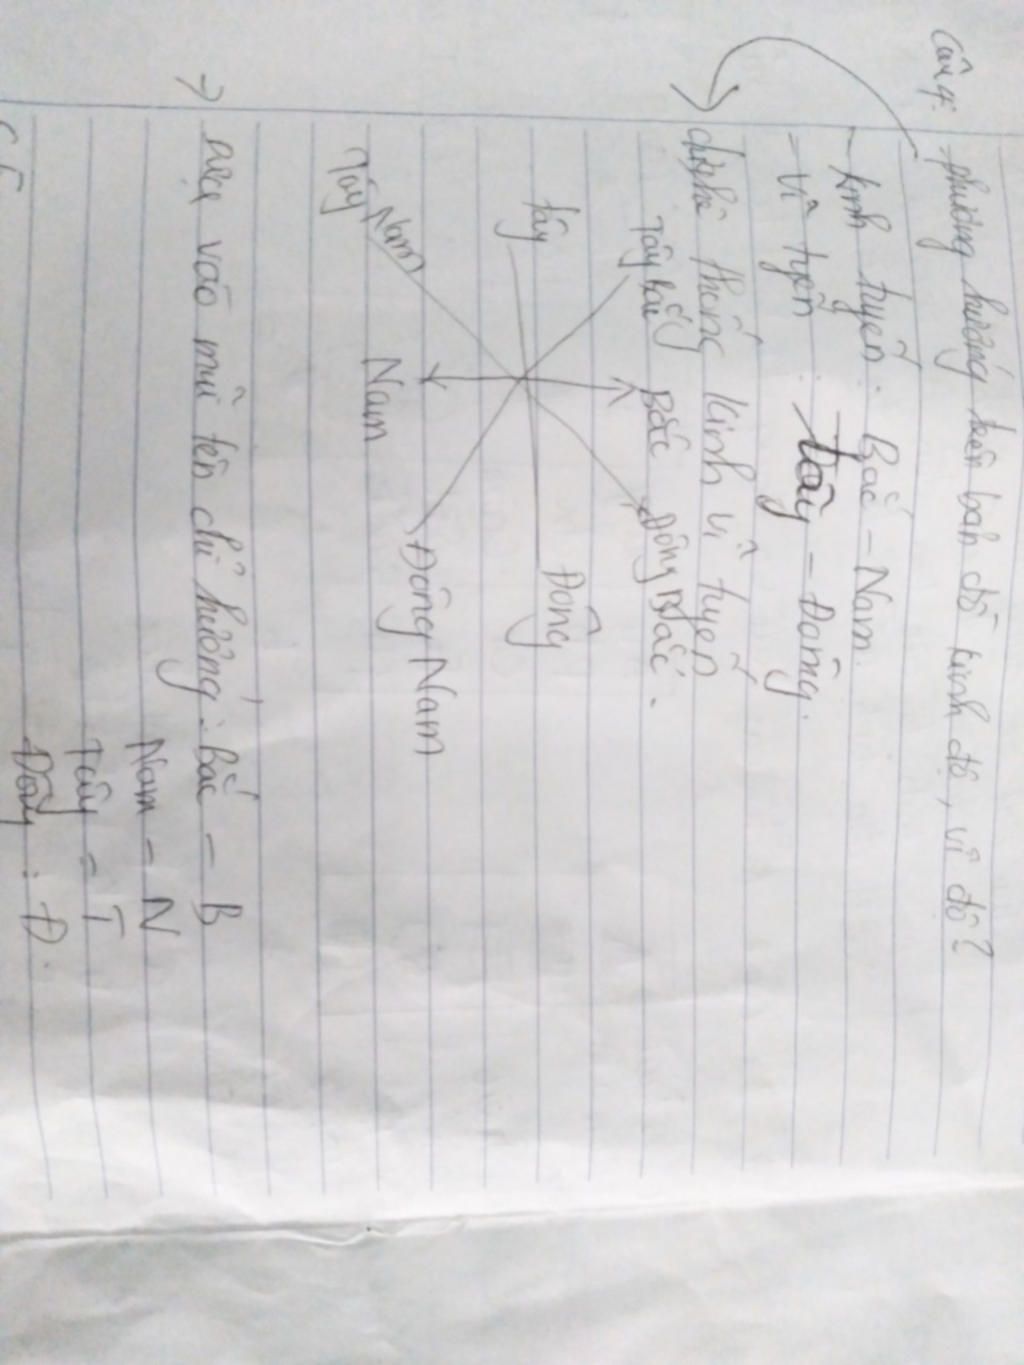 Câu 4:
- phương hướng trên bản đồ kinh độ, vĩ độ?
- kinh tuyến: Bắc - Nam.
- vĩ tuyến: Tây - Đông.
hệ thống kinh vĩ tuyến
Tây Bắc Bắc Đông Bắc.
Tây Đông
Tây Nam Nam Đông Nam
→ dựa vào mũi tên chỉ hướng: Bắc - B
Nam - N
Tây - T
Đông : Đ.